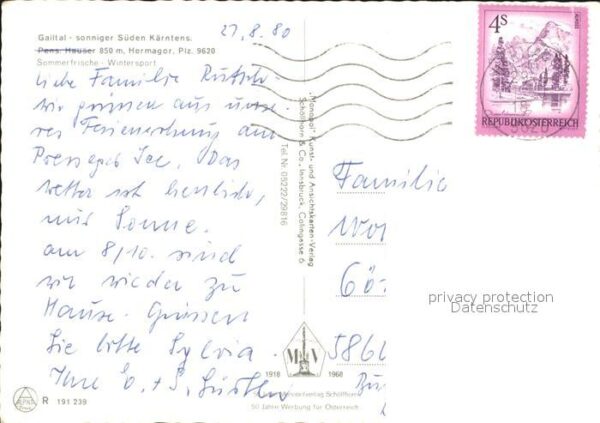 Gailtal - sonniger Süden Kärntens.
Pens. Hauser 850 m, Hermagor. Plz. 9620
Sommerfrische - Wintersport
27.8.80
Liebe Familie
wir grüssen aus unse-
rer Ferienwohnung am
Pressegger See. Das
Wetter ist herrlich,
nur Sonne.
am 8/10. sind
wir wieder zu
Hause. Grüssen
Sie bitte Sylvia.
Ihre E. + S.
"Monopol" Kunst- und Ansichtskarten-Verlag
Schöllhorn & Co., Innsbruck, Colingasse 6
Tel. Nr. 05222/29816
4S
REPUBLIK ÖSTERREICH
Familie
Wo
Gö
privacy protection
Datenschutz
586
M V
1918 1968
50 Jahre Werbung für Österreich
R 191 239